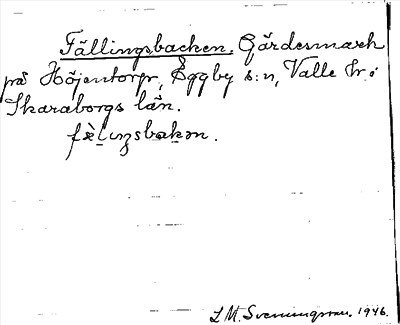 Fällingsbacken. Gärdesmark
på Höjentorp, Eggby s:n, Valle hd i
Skaraborgs län.
fæ̀lıŋsbakən.
L M. Svenningsson. 1946.